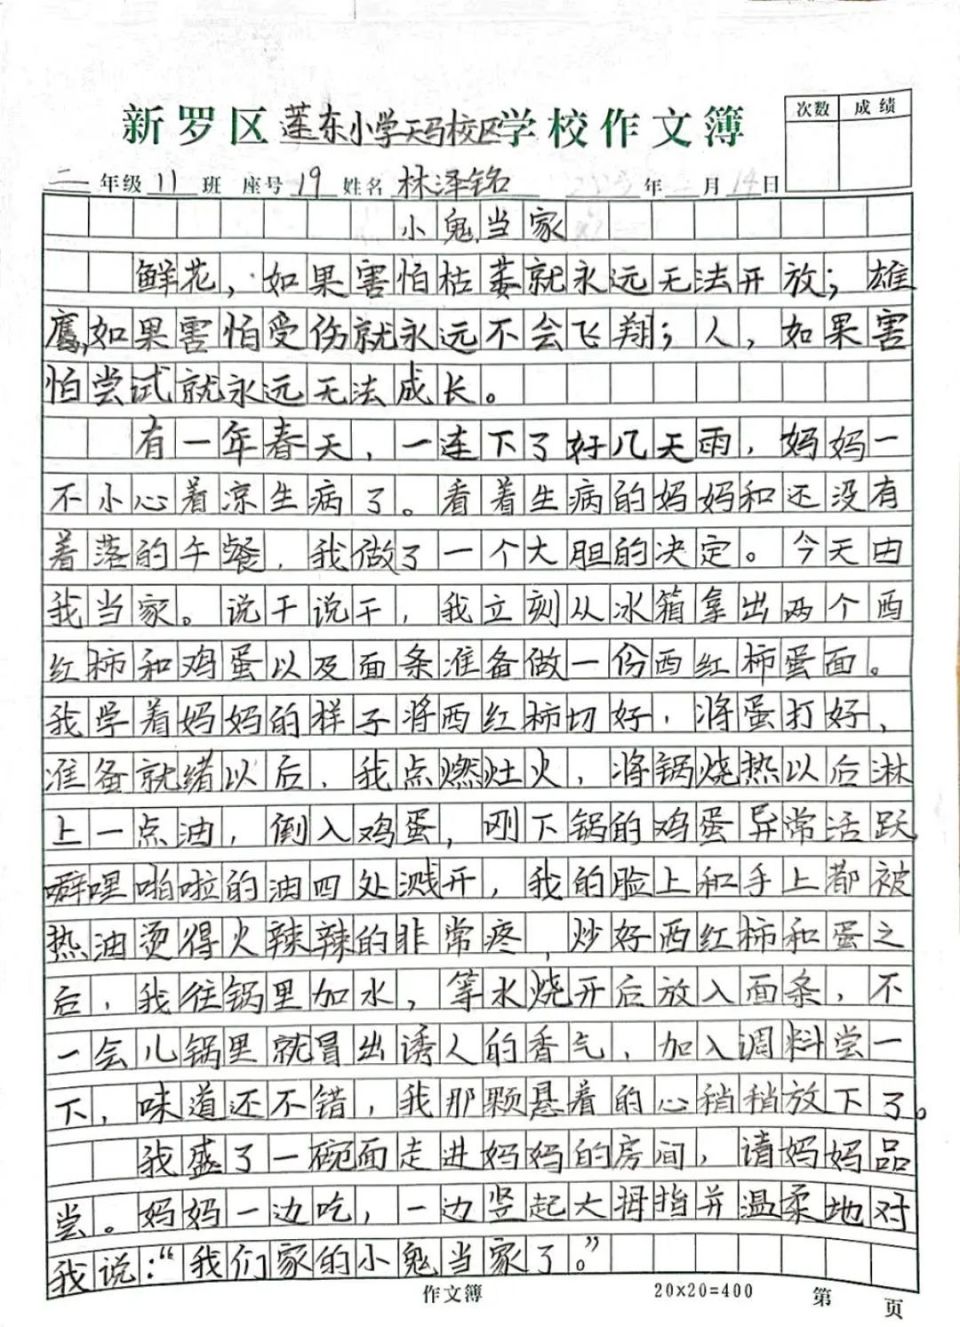 新罗区莲东小学天马校区学校作文簿
次数 成绩
二年级11班 座号19 姓名林泽铭 年 月14日
小鬼当家
鲜花，如果害怕枯萎就永远无法开放；雄
鹰，如果害怕受伤就永远不会飞翔；人，如果害
怕尝试就永远无法成长。
有一年春天，一连下了好几天雨，妈妈一
不小心着凉生病了。看着生病的妈妈和还没有
着落的午餐，我做了一个大胆的决定。今天由
我当家。说干说干，我立刻从冰箱拿出两个西
红柿和鸡蛋以及面条准备做一份西红柿蛋面。
我学着妈妈的样子将西红柿切好，将蛋打好，
准备就绪以后，我点燃灶火，将锅烧热以后淋
上一点油，倒入鸡蛋，刚下锅的鸡蛋异常活跃
噼哩啪啦的油四处溅开，我的脸上和手上都被
热油烫得火辣辣的非常疼，炒好西红柿和蛋之
后，我往锅里加水，等水烧开后放入面条，不
一会儿锅里就冒出诱人的香气，加入调料尝一
下，味道还不错，我那颗悬着的心稍稍放下了。
我盛了一碗面走进妈妈的房间，请妈妈品
尝。妈妈一边吃，一边竖起大拇指并温柔地对
我说：“我们家的小鬼当家了。”
作文簿 20×20=400 第 页